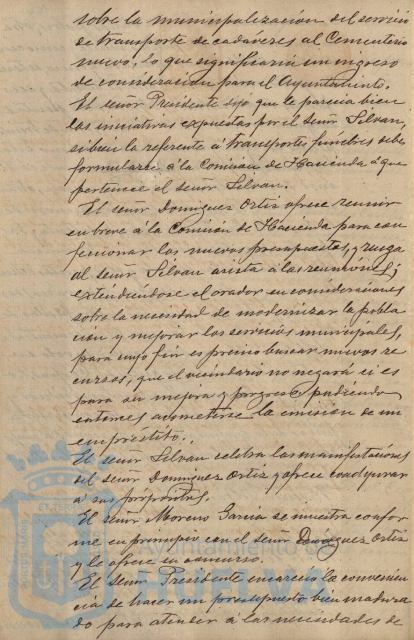 sobre la municipalización del servicio
de transporte de cadáveres al Cementerio
nuevo, lo que significaría un ingreso
de consideración para el Ayuntamiento.
El señor Presidente dijo que le parecía bien
las iniciativas expuestas por el señor Silvan,
si bien la referente á transportes fúnebres debe
formularse á la Comisión de Hacienda á que
pertenece el señor Silvan.
El señor Dominguez Ortiz ofrece reunir
en breve á la Comisión de Hacienda para con
feccionar los nuevos presupuestos, y ruega
al señor Silvan asista á las reuniones;
extendiéndose el orador en consideraciones
sobre la necesidad de modernizar la pobla
ción y mejorar los servicios municipales,
para cuyo fin es preciso buscar nuevos re
cursos, que el vecindario no negará si es
para su mejora y progreso, pudiendo
entonces acometerse la emisión de un
empréstito.
El señor Silvan celebra las manifestaciones
del señor Dominguez Ortiz y ofrece coadyuvar
a sus propósitos.
El señor Moreno Garcia se muestra confor
me en principio con el señor Dominguez Ortiz
y le ofrece su concurso.
El señor Presidente encarece la convenien
cia de hacer un presupuesto bien madura
do para atender a las necesidades de
Ayuntamiento de
HUELVA